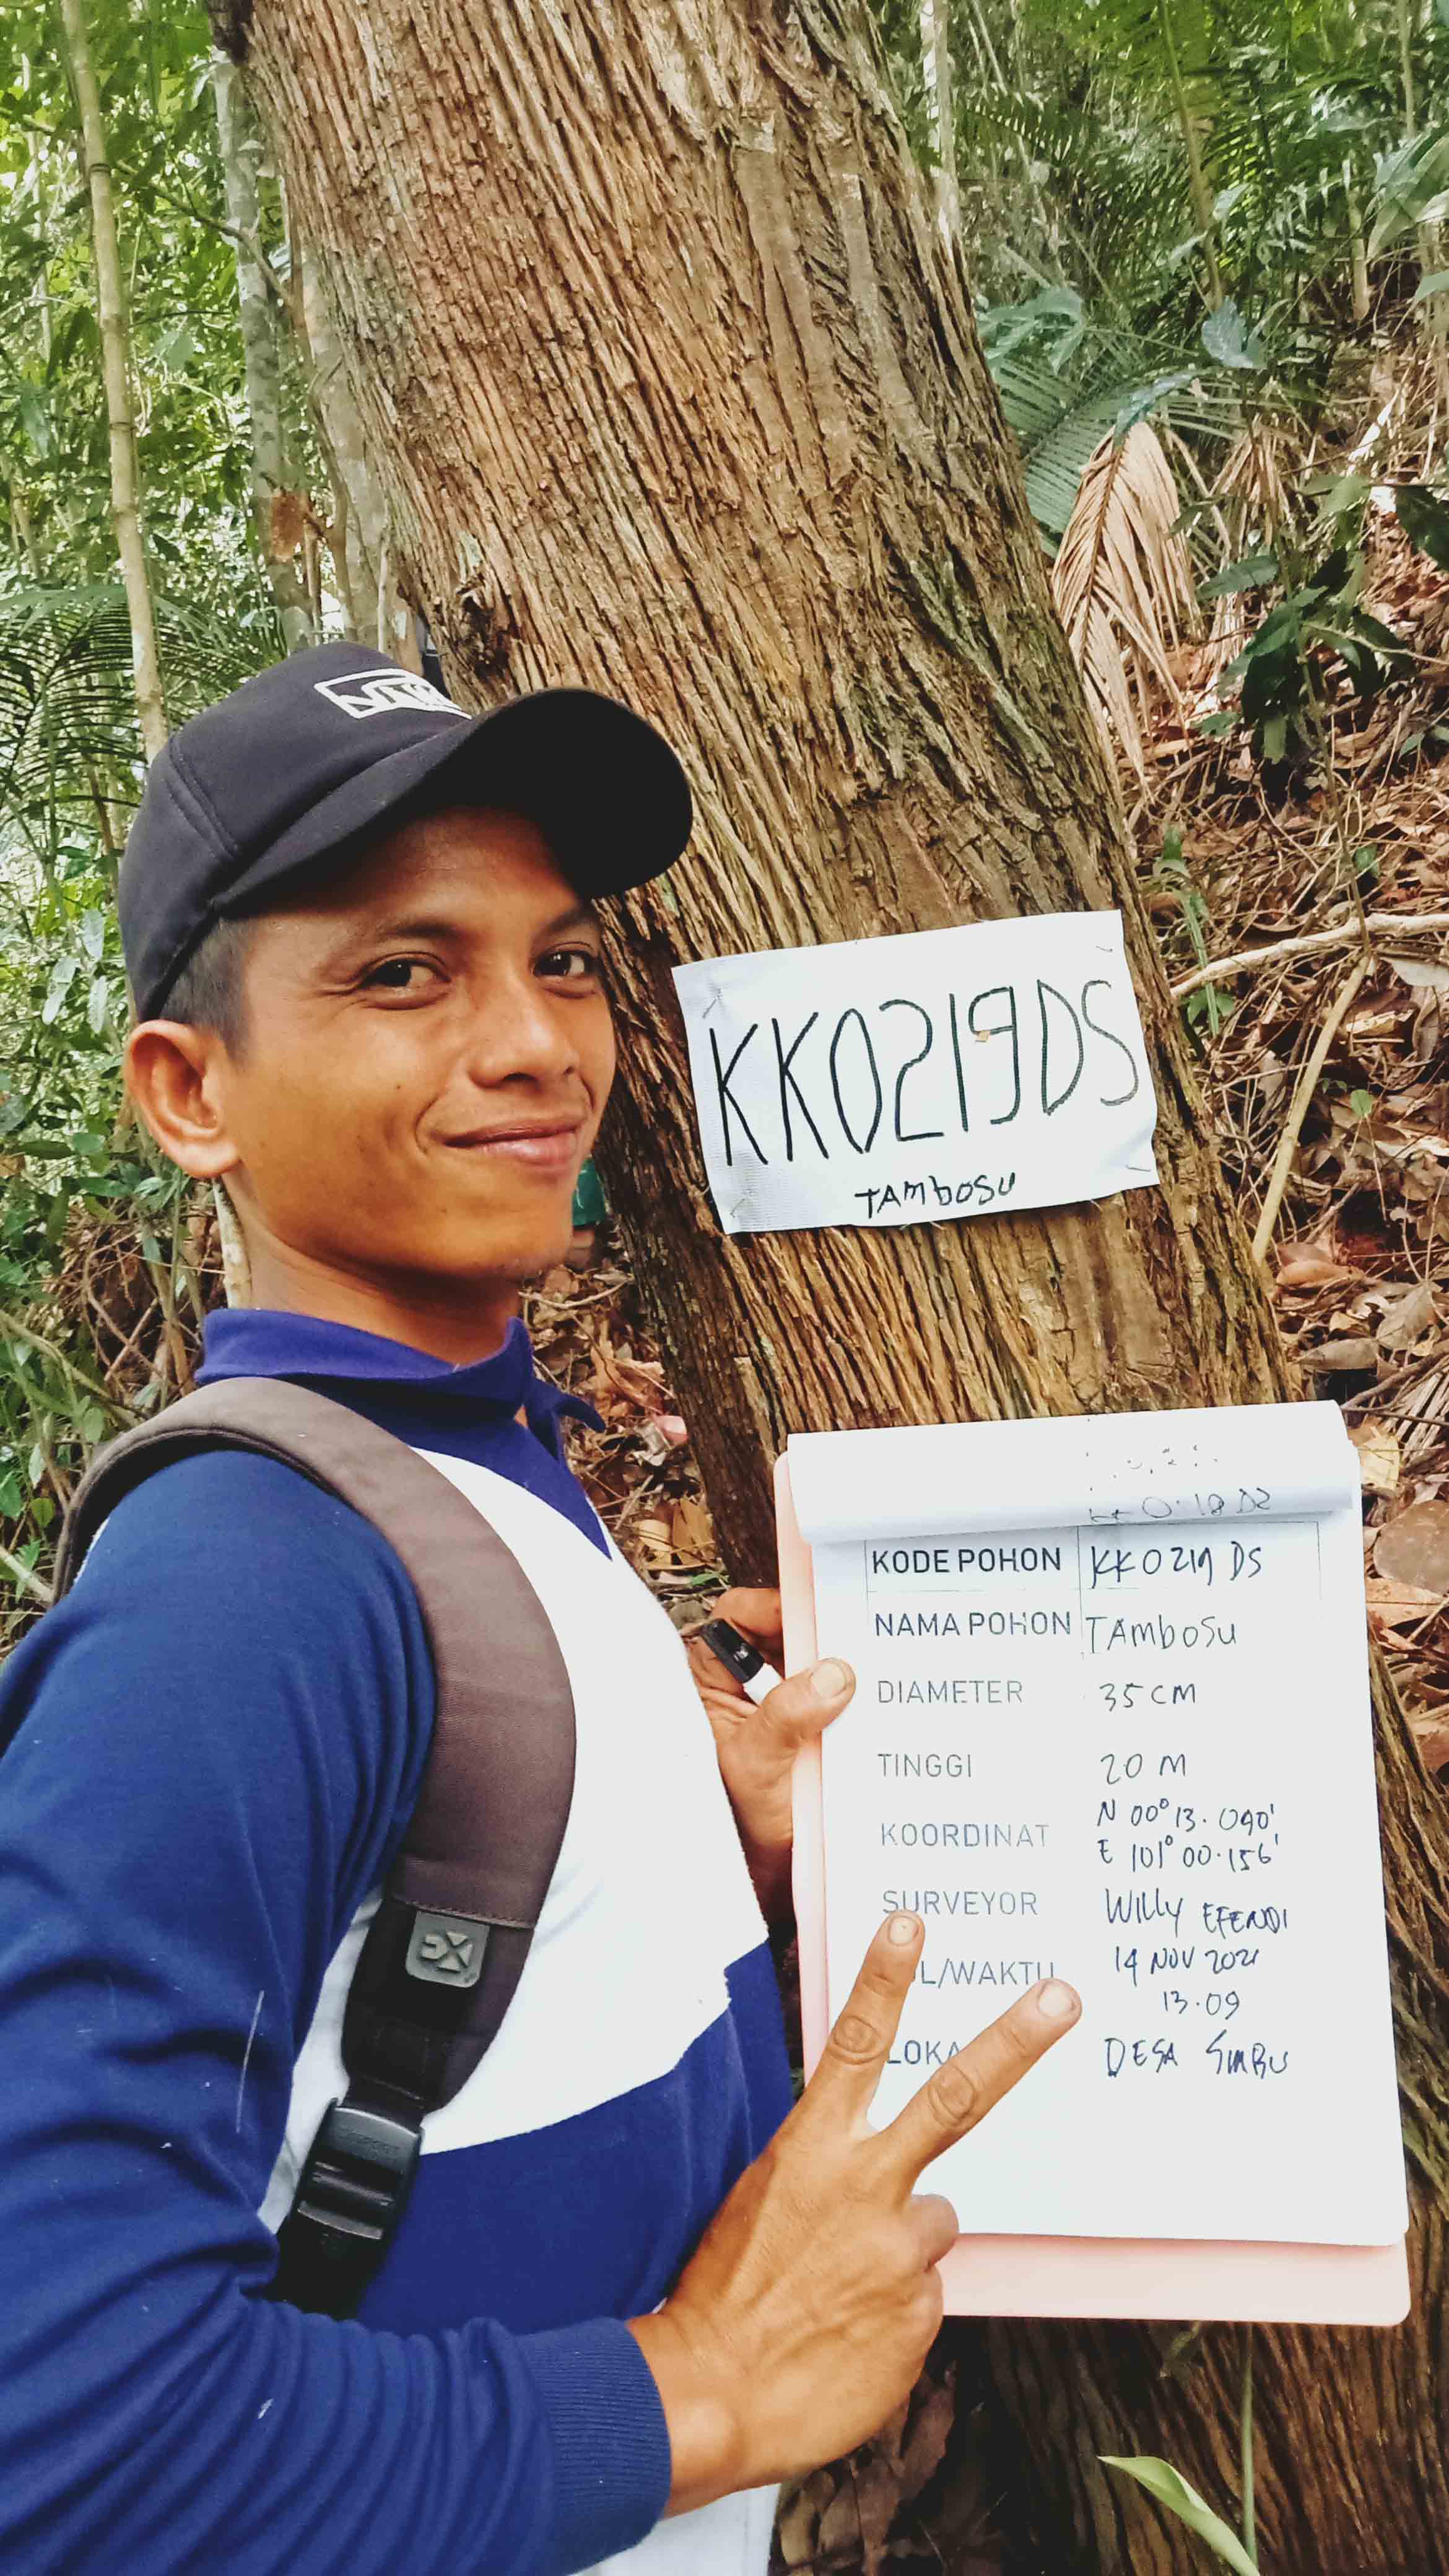 KK0219DS
TAMBOSU
KODE POHON KK0219 DS
NAMA POHON TAMBOSU
DIAMETER 35 CM
TINGGI 20 M
KOORDINAT N 00° 13. 090'
E 101° 00.156'
SURVEYOR WILLY EFENDI
L/WAKTU 14 NOV 2021
13.09
LOKA DESA